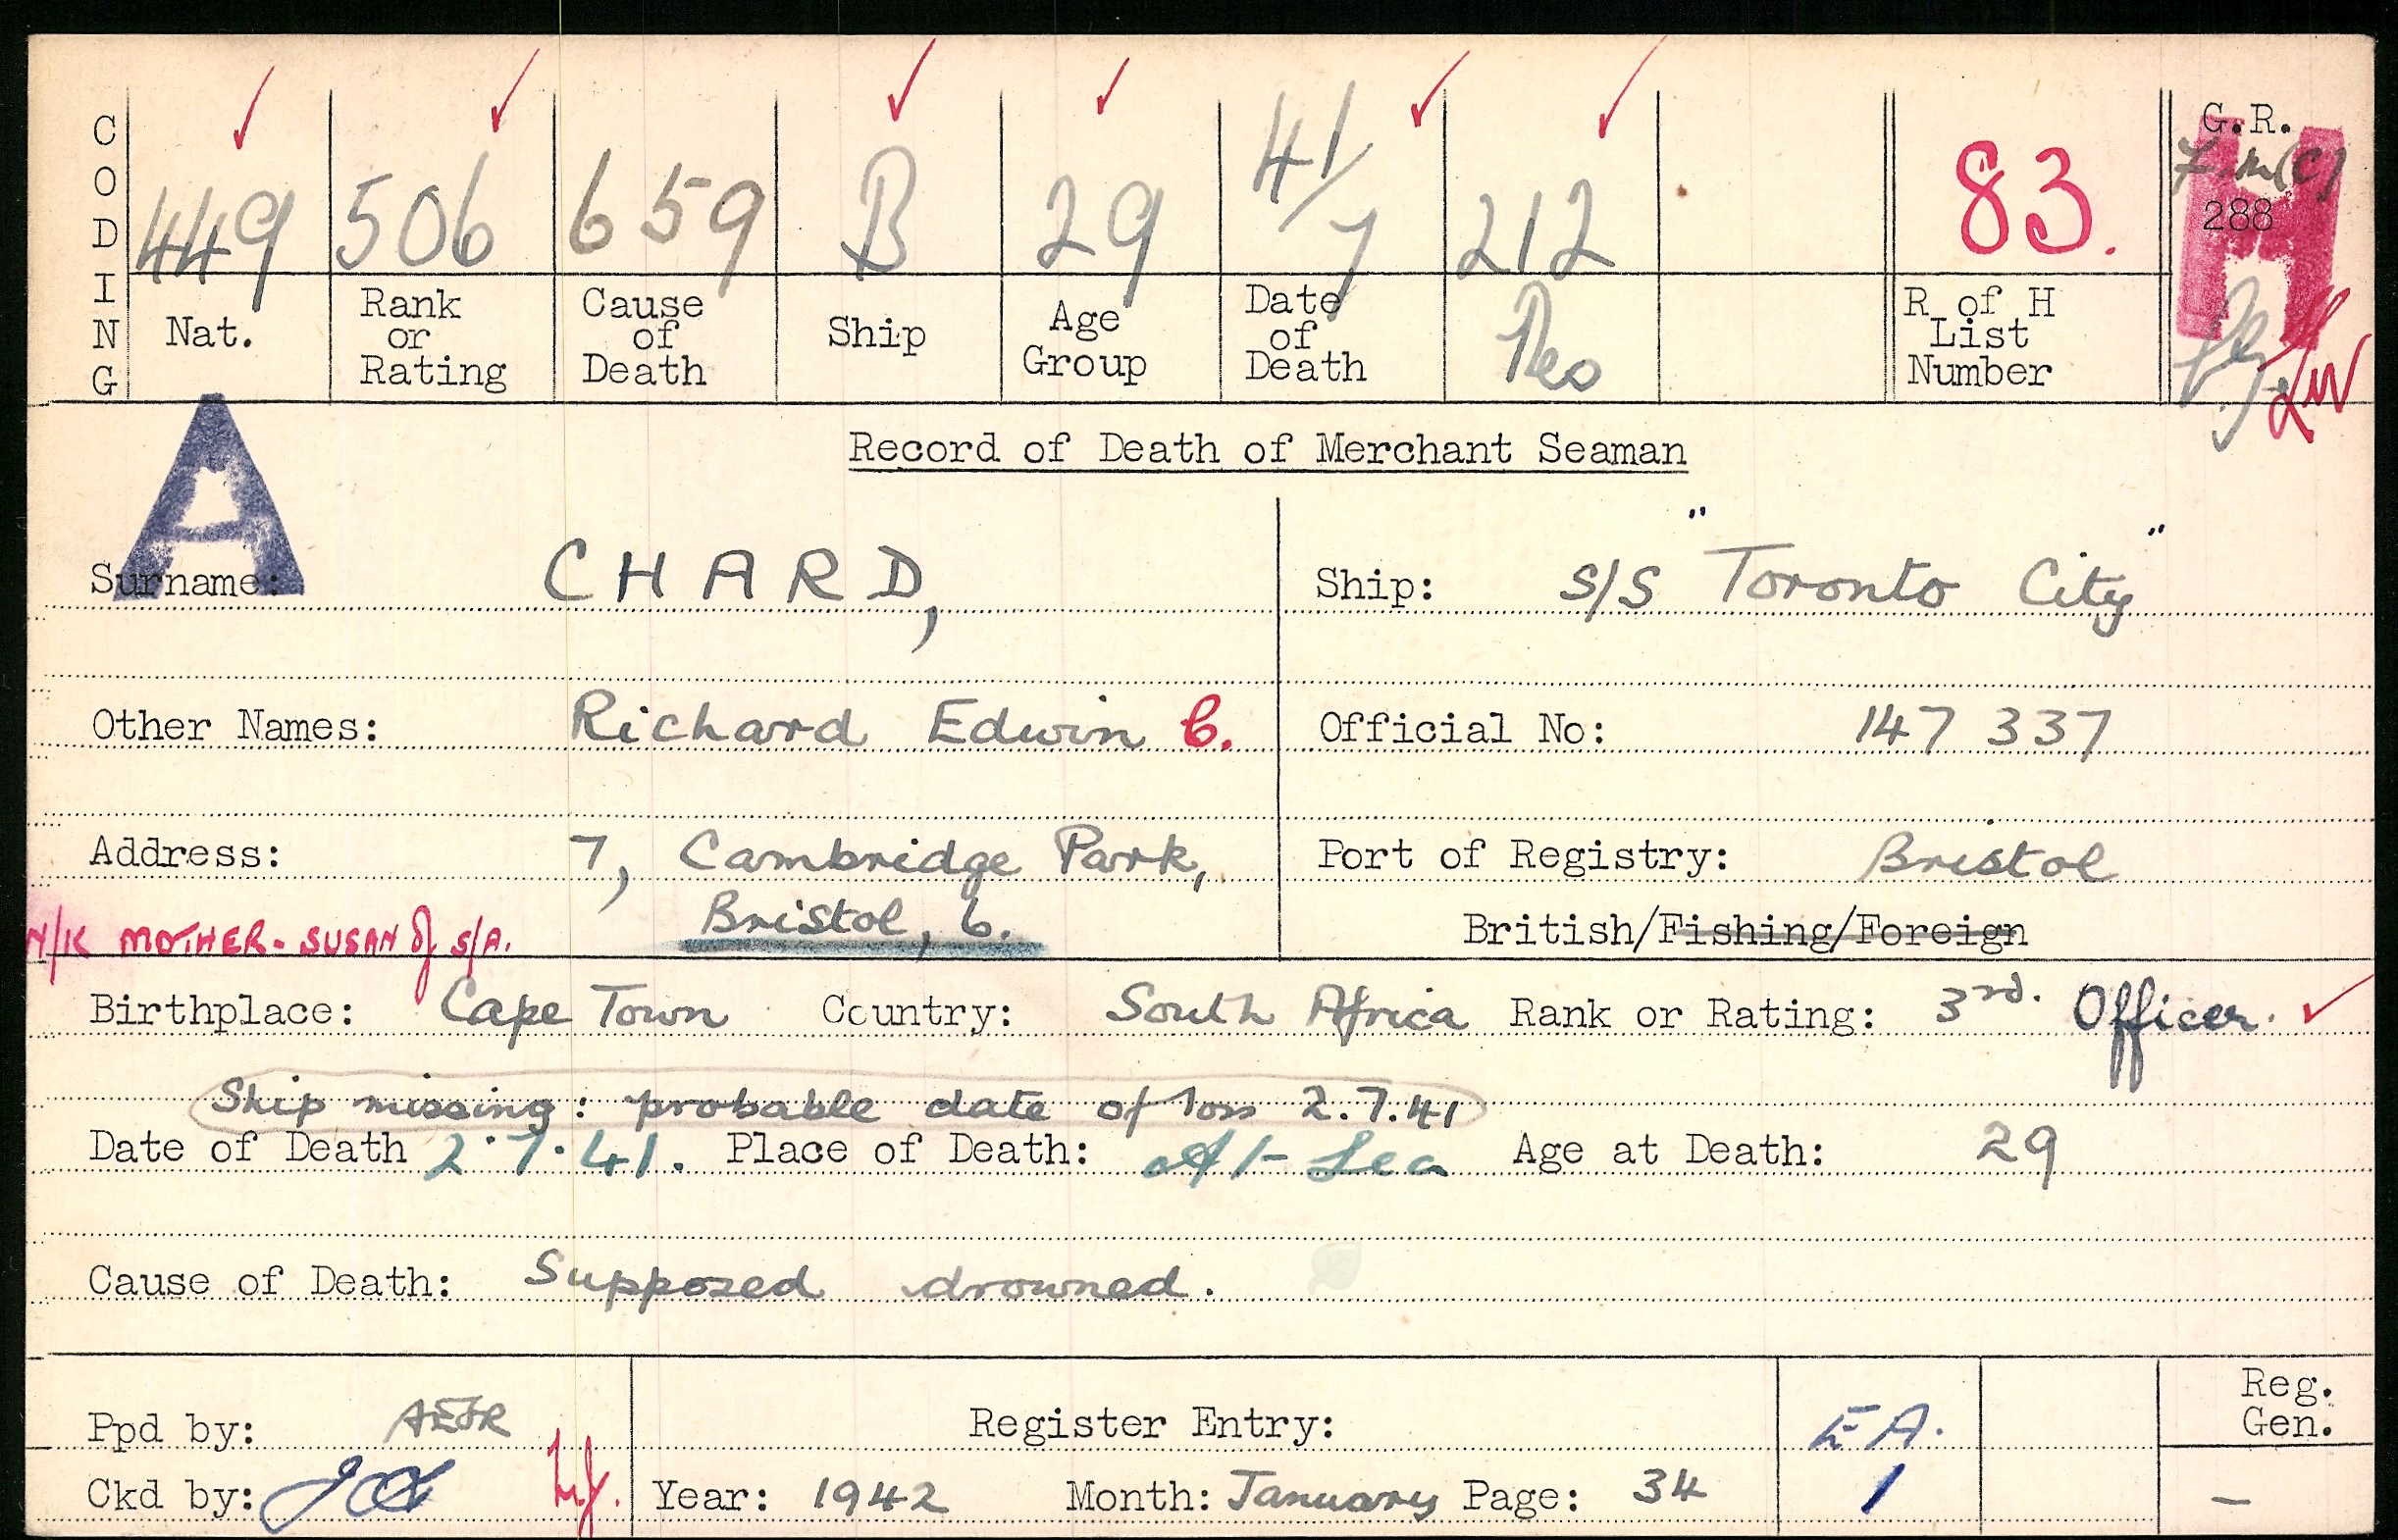 CODING
449 506 659 B 29 41/7 212 83. G.R.
288
H
Nat. Rank or Rating Cause of Death Ship Age Group Date of Death R of H List Number
A
Record of Death of Merchant Seaman
Surname: CHARD, Ship: S/S "Toronto City"
Other Names: Richard Edwin C. Official No: 147 337
Address: 7, Cambridge Park, Port of Registry: Bristol
N/K MOTHER - SUSAN of S/A. Bristol, 6. British/Fishing/Foreign
Birthplace: Cape Town Country: South Africa Rank or Rating: 3rd. Officer.
Ship missing: probable date of loss 2.7.41
Date of Death 2.7.41. Place of Death: At Sea Age at Death: 29
Cause of Death: Supposed drowned.
Ppd by: Register Entry: EA. Reg. Gen.
Ckd by: Year: 1942 Month: January Page: 34 1 –